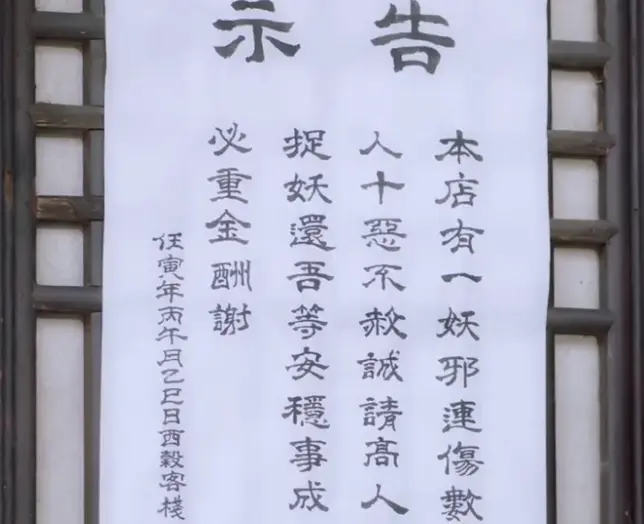 告示
本店有一妖邪連傷數
人十惡不赦誠請高人
捉妖還吾等安穩事成
必重金酬謝
壬寅年丙午月乙巳日酉穀客棧